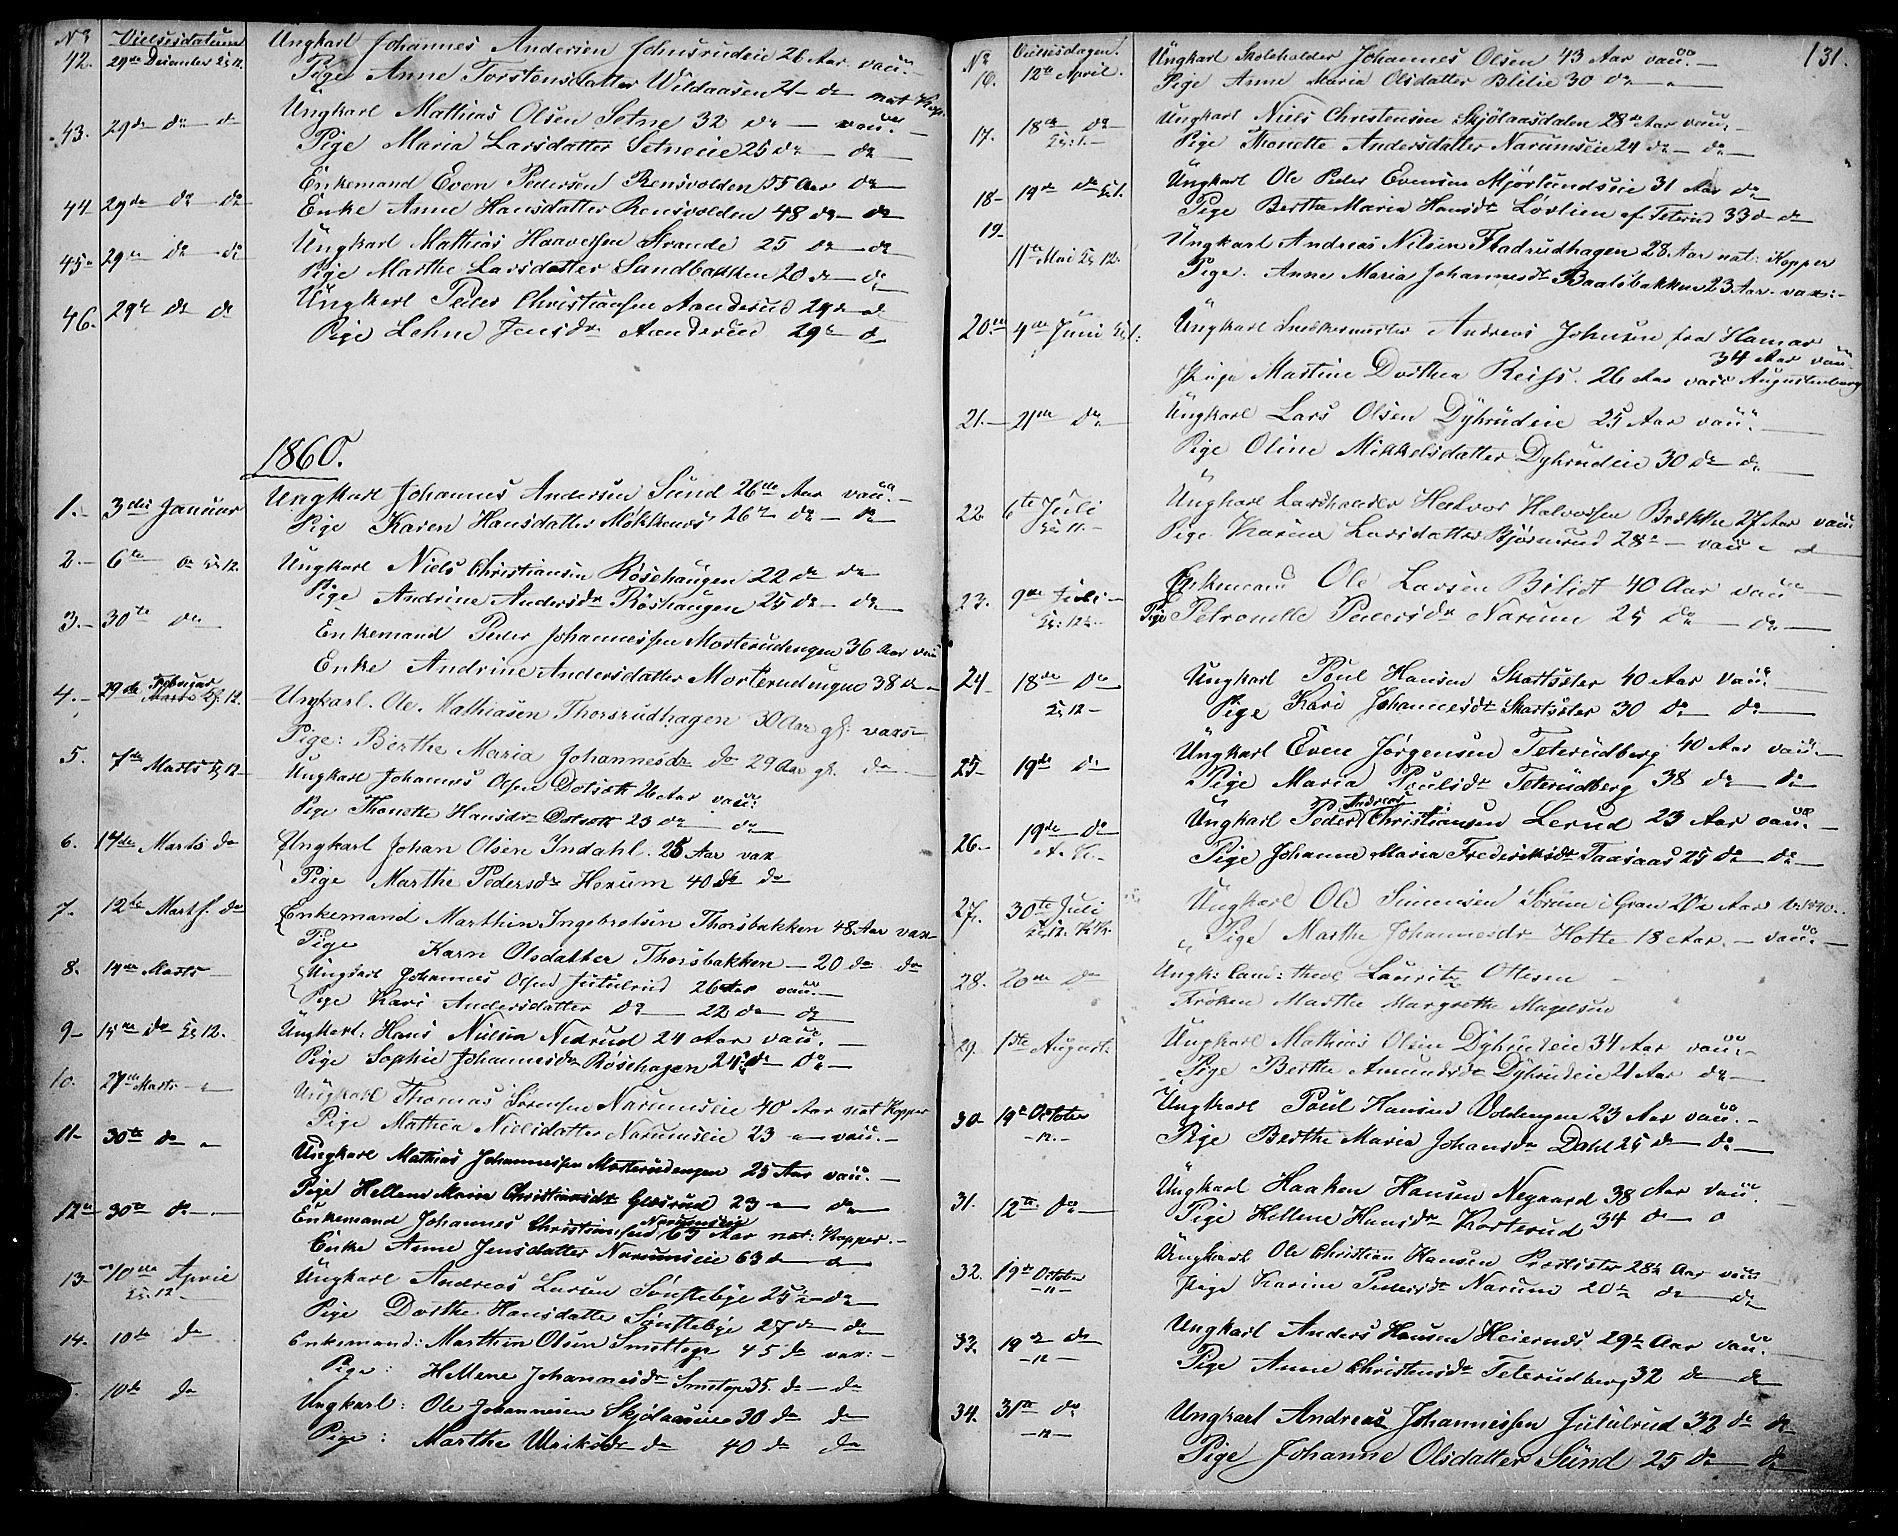 No Vielsesdatum
42. 29de December Kl 12. Ungkarl Johannes Andersen Johnsrudeie 26 Aar vac.
Pige Anne Torstensdatter Wildaasen 21 do nat Kop.
43. 29de do do Ungkarl Mathias Olsen Setne 32 do vac.
Pige Maria Larsdatter Setneeie 25 do do
44 29de do do Enkemand Even Pedersen Rensvolden 55 Aar do
Enke Anne Hansdatter Rensvolden 48 do do
45 29de do do Ungkarl Mathias Haavelsen Strande 25 do do
Pige Marthe Larsdatter Sandbakken 20 do do
46. 29de do do Ungkarl Peder Christiansen Aanderud 29 do do
Pige Lehne Jensdr Aanderud 29 do
1860.
1. 3die Januar Ungkarl Johannes Andersen Sund 26 Aar vac.
Pige Karen Hansdatter Møkkenes 26 do do
2. 6te do Kl 12. Ungkarl Niels Christiansen Røsehaugen 22 do do
Pige Andrine Andersdr Røshaugen 25 do do
3. 30te do Enkemand Peder Johannessen Morterudengen 36 Aar vac
Enke Andrine Andersdatter Morterudengen 38 do
4. 29de Februar Kl. 12. Ungkarl. Ole Mathiasen Thorsrudhagen 30 Aar gl. vacs
Pige: Berthe Maria Johannesdr do 29 Aar gl. do
5. 7de Marts Kl 12 Ungkarl Johannes Olsen Dotsett 26 Aar vac.
Pige Thonette Hansdr Dotsett 23 do do
6. 14de Marts do Ungkarl Johan Olsen Indahl. 25 Aar vax
Pige Marthe Pedersdr Horum 40 do do
7. 12te Marts. do Enkemand Marthin Ingebretsen Thorsbakken 48 Aar vax
Pige Karn Olsdatter Thorsbakken 20 do do
8. 14de Marts Ungkarl Johannes Olsen Jutulrud 26 Aar vac.
Pige Kari Andersdatter do 22 do do
9 15de do Kl 12. Ungkarl: Hans Nielsen Nedrud 24 Aar vac.
Pige Sophie Johannesdr Røsehagen 24 do do
10. 27de Marts Ungkarl Thomas Sørensen Narumseie 40 Aar nat Kopper
Pige Mathea Nielsdatter Narumseie 23 vac.
11 30te do Ungkarl Mathias Johannessen Morterudengen 25 Aar vac.
Pige Hellene Marie Christiansdr Gløsrud 23 do
12 30te do Enkemand Johannes Christiansen Narumseie 65 Aar nat: Kopper.
Enke Anne Jensdatter Narumseie 63
13 10de April Kl. 12 Ungkarl Andreas Larsen Sønstebye 25 do
Pige Dorthe Hansdatter Sønstebye 27 do do
14. 10de do Enkemand: Marthin Olsen Smeltop 45 do vax:
Pige: Hellene Johannesdr Smetop 35. do do
10de do Ungkarl: Ole Johannesen Skjølaaseie 30 do do
Pige: Marthe Ulriksdr do 40 do do
131.
No Vielsesdagen
16. 12te April. Ungkarl Skoleholder Johannes Olsen 43 Aar vac.
Pige Anne Maria Olsdatter Blilie 30 do
17. 18de do Kl. 1. Ungkarl Niels Christensen Skjølaasdalen 28 Aar vac.
Pige Thonette Andersdatter Narumseie 24 do do
18 19de do Kl 1. Ungkarl Ole Peder Evensen Mjørlundseie 31 Aar do
Pige Berthe Maria Hansdr Løvlien af Teterud 33 do do
19 11te Mai Kl 12. Ungkarl Andreas Nilsen Fladrudhagen 28 Aar nat: Kopper
Pige. Anne Maria Johannesdr Baalsbakken 23 Aar. vax:
20 4de Juni Kl 1. Ungkarl Snekkermester Andreas Johnsen fra Hamar
34 Aar vac
Pige Martine Dorthea Reiss. 26 Aar vac Augustenborg
21. 21de do Ungkarl Lars Olsen Dyhrudeie 25 Aar vac.
Pige Oline Mikkelsdatter Dyhrudeie 30 do do
22. 6te Juli Kl 11. Ungkarl Landhandler Halvor Halvorsen Brække 27 Aar vac
Pige Karine Larsdatter Bjørnerud 28 vac
23. 9de Juli Kl. 12 Enkemand Ole Larsen Bilidt 40 Aar vac
Pige Petronelle Pedersdr Narum 25 do do
24 18de do Kl 12 Ungkarl Poul Hansen Skartsæter 40 Aar vac.
Pige Kari Johannesdr Skartsæter 30 do do
25 19de do Ungkarl Even Jørgensen Teterudberg 40 Aar vac.
Pige Maria Poulsdr Teterudberg 38 do do
26. 19de do Ungkarl Peder Andreas Christiansen Lerud 23 Aar vac.
Pige Johanne Maria Frederiksdr Taasaas 25 do do
27. 30te Juli Kl 12. Ungkarl Ole Simensen Sørum i Gran 20 Aar
Pige Marthe Johannesdr Hotte 18 Aar. vac.
28. 20de do Ungk: Cand: theol Lauritz Ottesen
Frøken Marthe Margrethe Magelsen
29. 1ste August. Ungkarl Mathias Olsen Dyhrudeie 34 Aar vac.
Pige Berthe Amundsdr Dyhrudeie 21 Aar do
30 19de October 12. Ungkarl Poul Hansen Voldengen 23 Aar vac.
Pige Berthe Maria Johansdr Dahl 25 do do
31. 12te do Ungkarl Haaken Hansen Negaard 38 Aar vac.
Pige Hellene Hansdr Korterud 34 do
32. 19de October Ungkarl Ole Christian Hansen Præstsæter 28 Aar vac
Pige Karine Pedersdr Narum 20 do do
33. 19de do 12 Ungkarl Anders Hansen Heiernes 29 Aar vac.
Pige Anne Christensdr Teterudberg 32 do do
34. 31te do Ungkarl Andreas Johannessen Jutulrud 32 do do
Pige Johanne Olsdatter Sund 25 do do